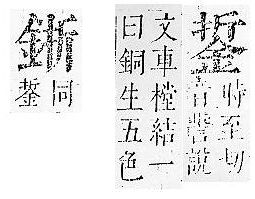 銴
時至切
音誓說
文車樘結一
曰銅生五色
同
銴